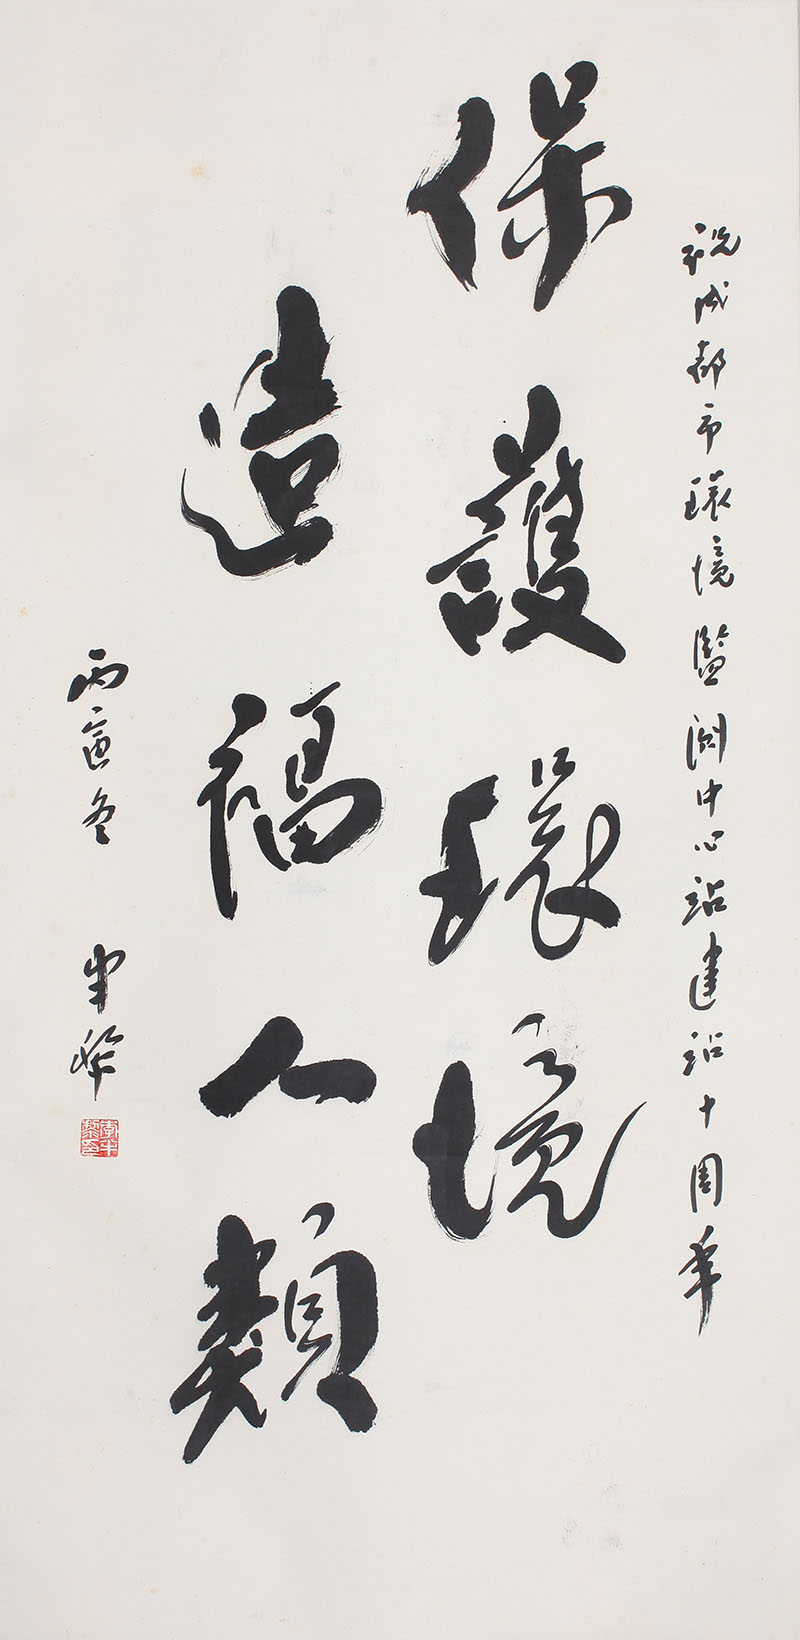 祝成都市環境監測中心站建站十周年
保護環境
造福人類
丙寅冬 半黎
李半黎印